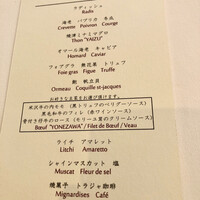 ラディッシュ
Radis
海老 パプリカ 冬瓜
Crevette Poivron Courge
焼津ミナミマグロ
Thon "YAIZU"
オマール海老 キャビア
Homard Caviar
フォアグラ 無花果 トリュフ
Foie gras Figue Truffe
鮑 帆立貝
Ormeau Coquille st-jacques
お好きなお皿をお選び頂けます。
米沢牛の内モモ (黒トリュフのペリグーソース)
黒毛和牛のフィレ (赤ワインソース)
骨付き仔牛のロース (モリーユ茸のクリームソース)
Bœuf "YONEZAWA" / Filet de Bœuf / Veau
ライチ アマレット
Litchi Amaretto
シャインマスカット 塩
Muscat Fleur de sel
焼菓子 トラジャ珈琲
Mignardises Café